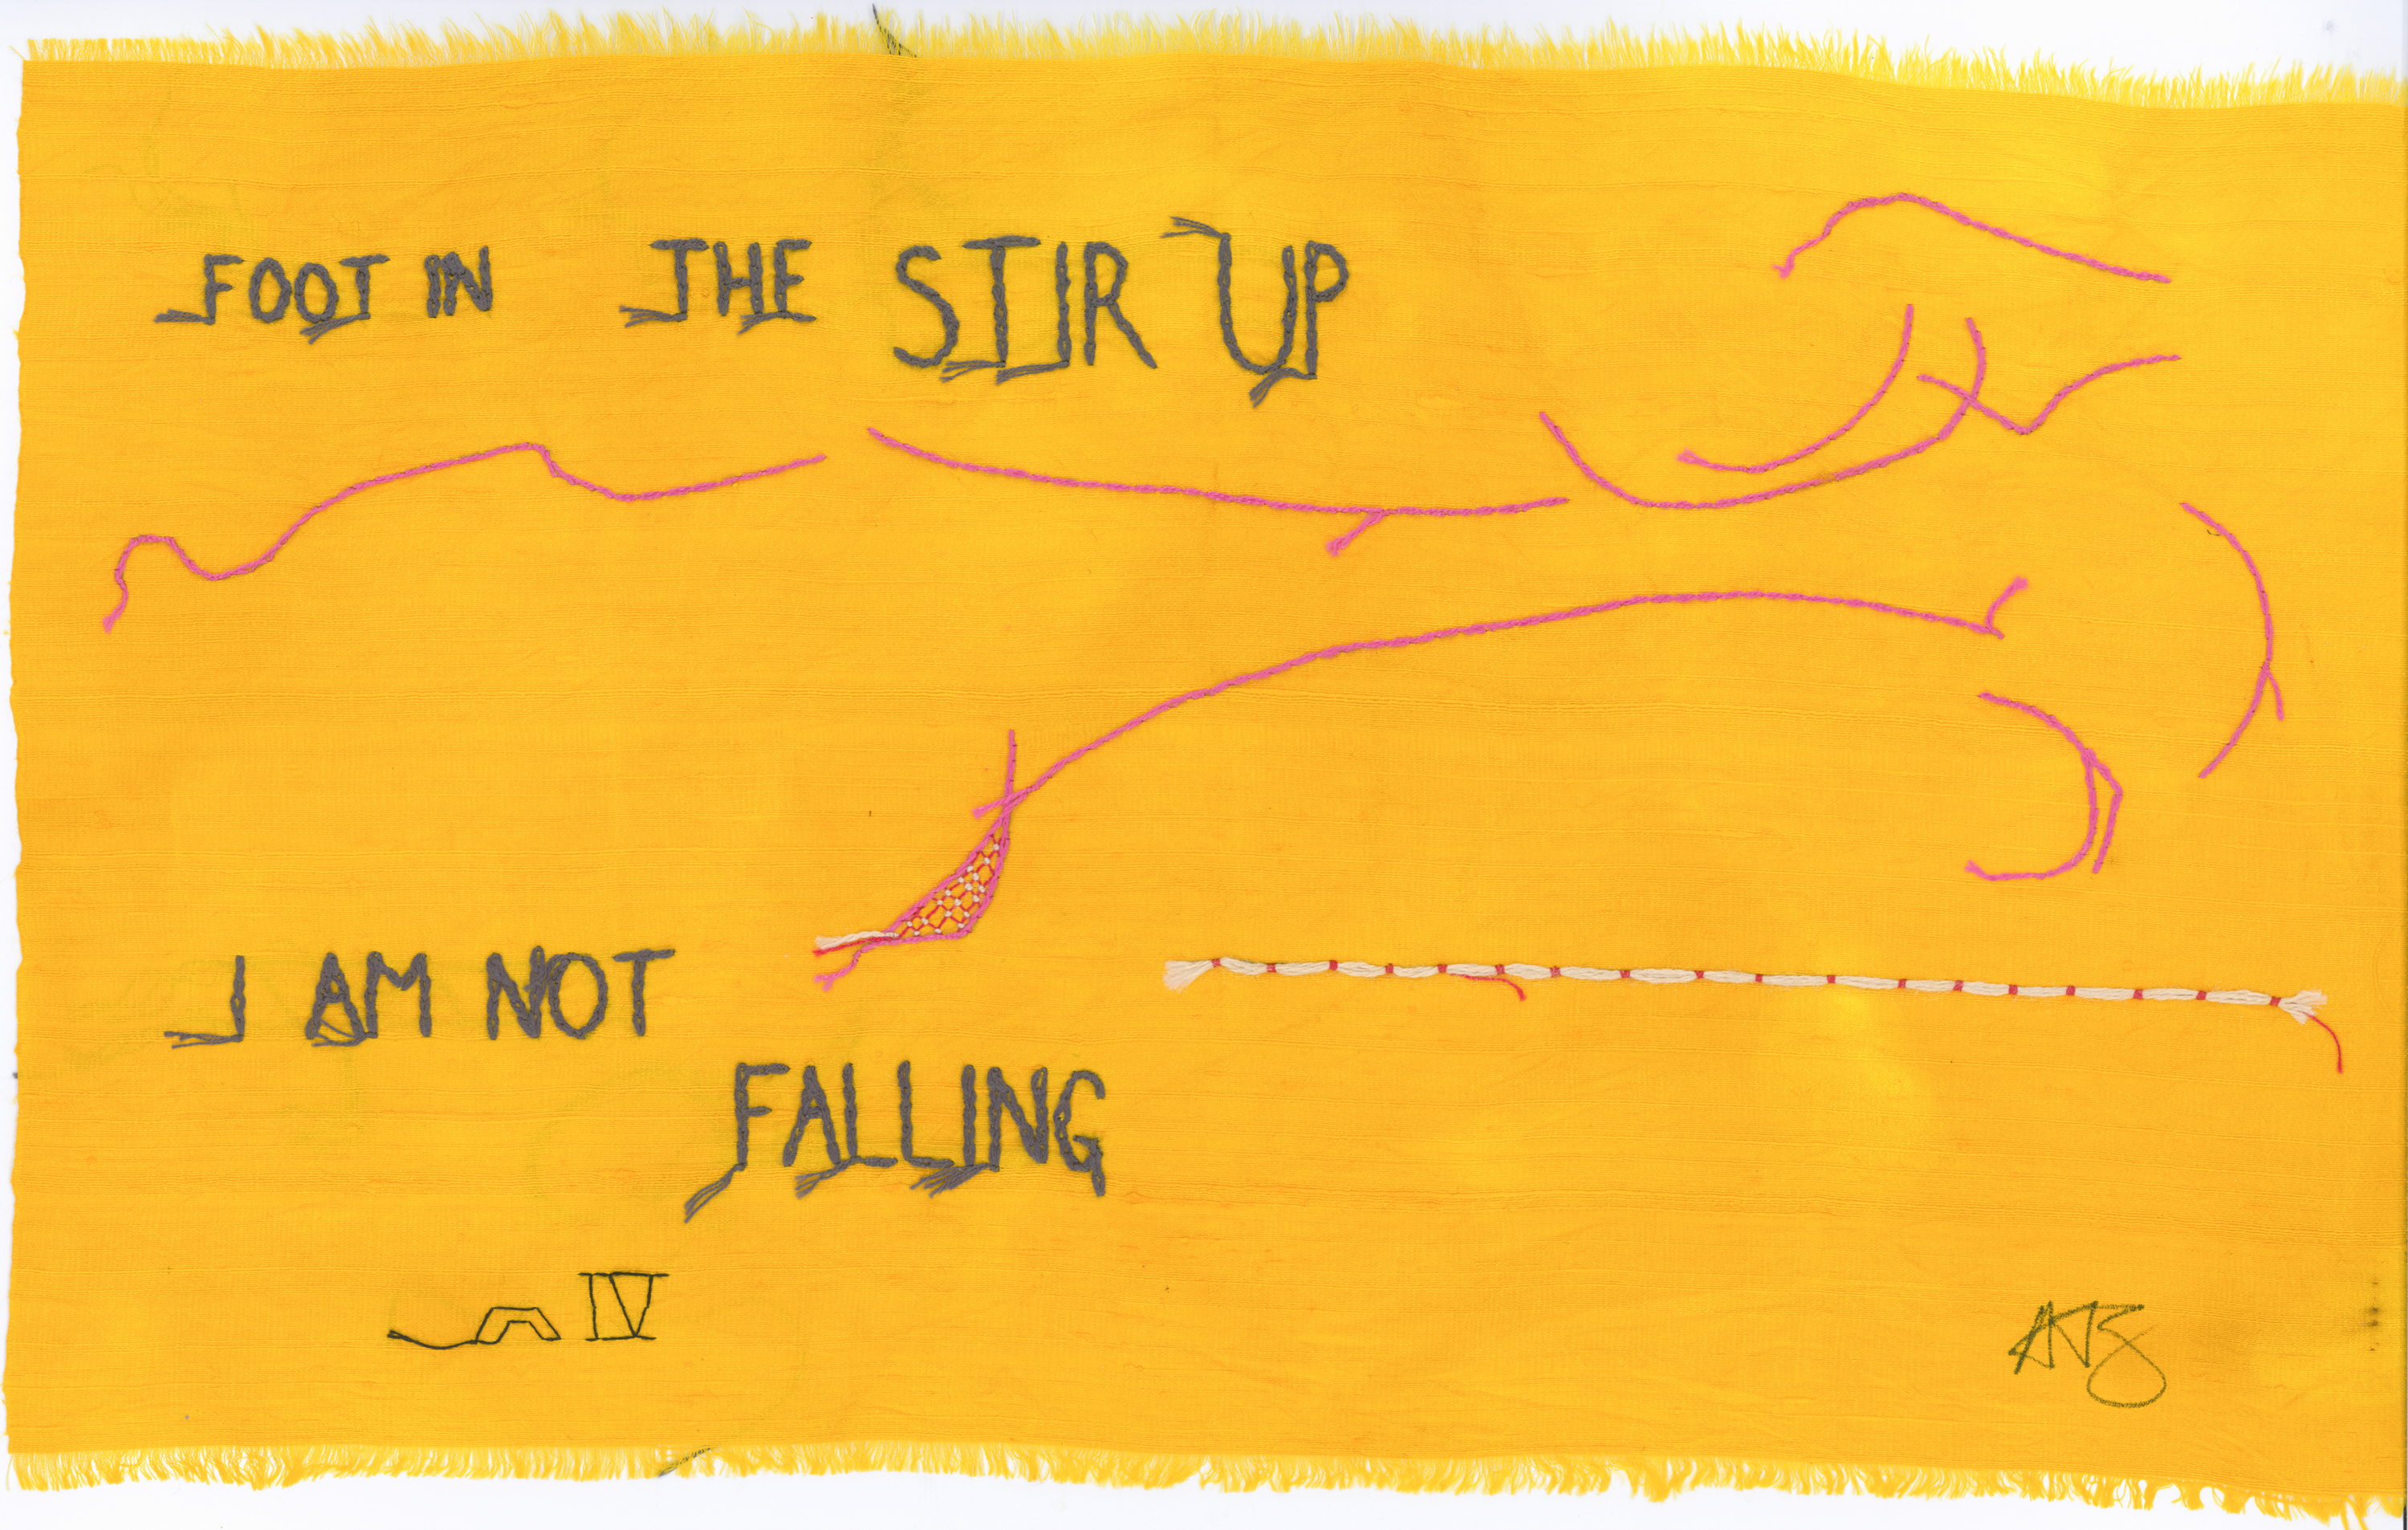 FOOT IN THE STIR UP
I AM NOT
FALLING
IV